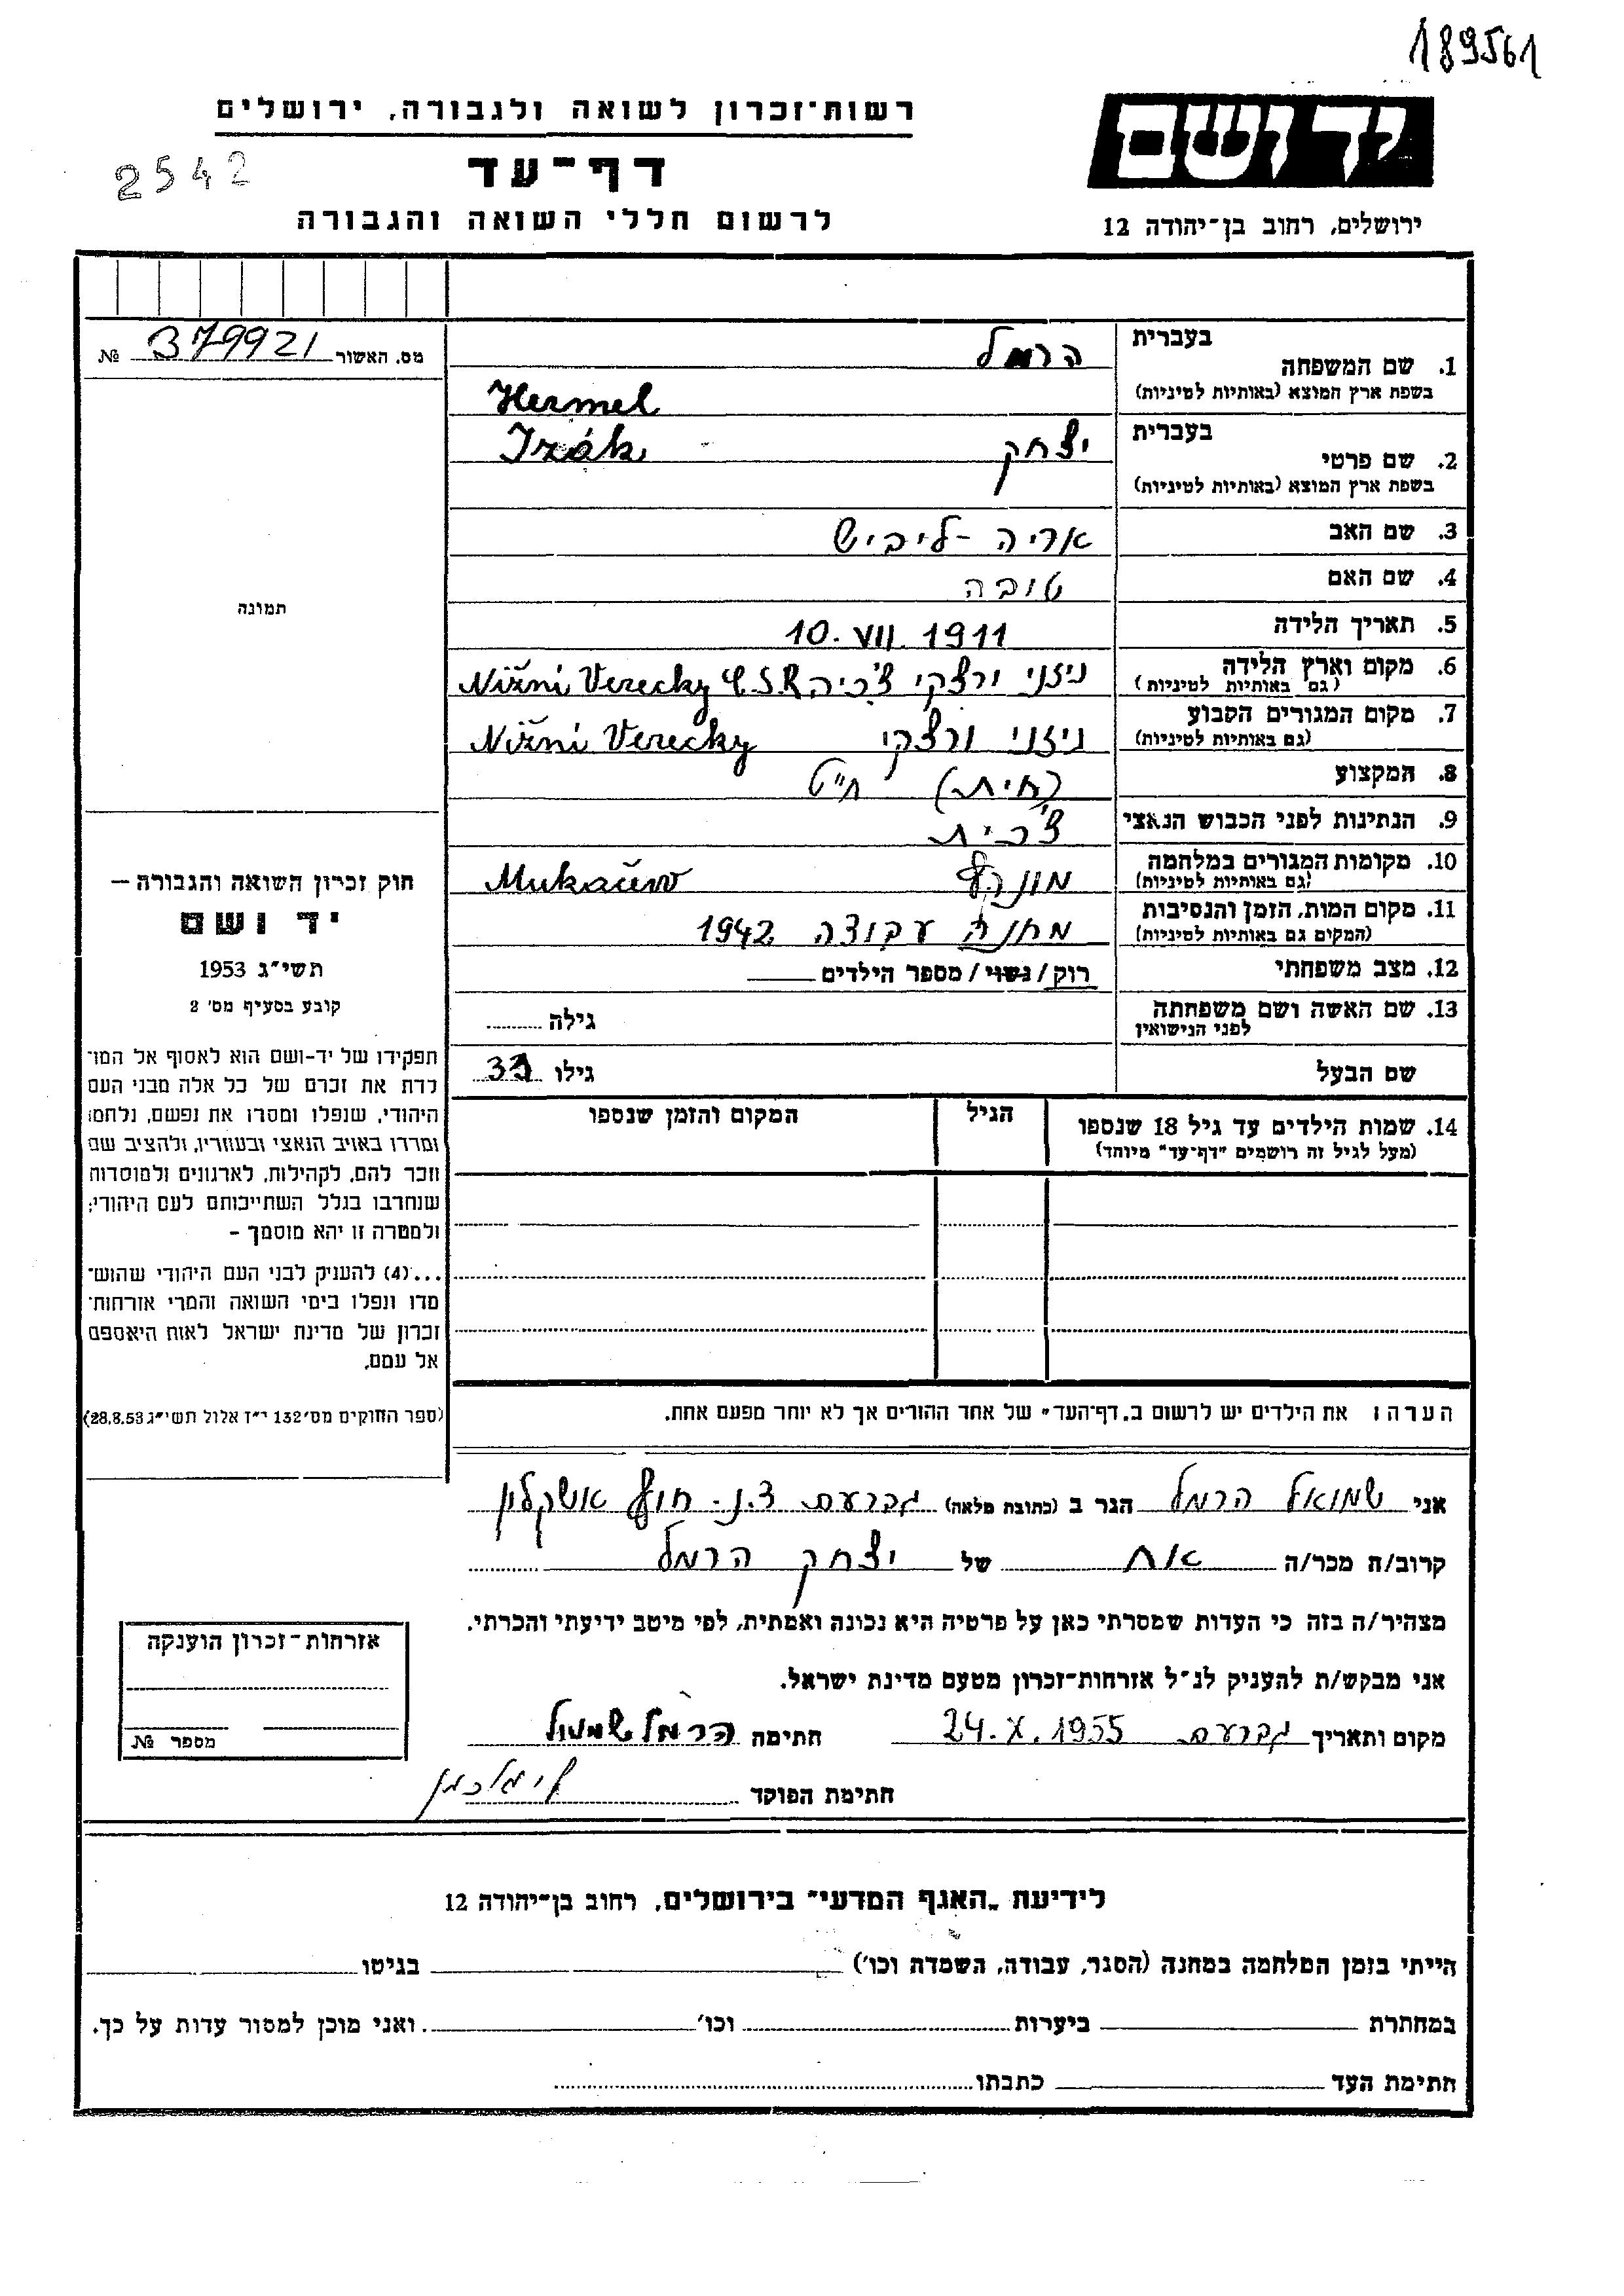 189561
יד ושם
ירושלים, רחוב בן־יהודה 12
רשות־זכרון לשואה ולגבורה, ירושלים
דף־עד
לרשום חללי השואה והגבורה
2542
מס. האשור 379921 №
תמונה
בעברית
1. שם המשפחה הרמל
בשפת ארץ המוצא (באותיות לטיניות) Hermel
בעברית
2. שם פרטי יצחק Izák
בשפת ארץ המוצא (באותיות לטיניות)
3. שם האב אריה - ליביש
4. שם האם טובה
5. תאריך הלידה 10. VII. 1911
6. מקום וארץ הלידה ניזני ורצקי צ'כיה Nižní Verecky Č.S.R.
(גם באותיות לטיניות)
7. מקום המגורים הקבוע ניזני ורצקי Nižní Verecky
(גם באותיות לטיניות)
8. המקצוע (חית) חייט
9. הנתינות לפני הכבוש הנאצי צ'כית
10. מקומות המגורים במלחמה Mukačevo
(גם באותיות לטיניות)
11. מקום המות, הזמן והנסיבות מחנה עבודה 1942
(המקום גם באותיות לטיניות)
12. מצב משפחתי רוק / נשוי / מספר הילדים
13. שם האשה ושם משפחתה גילה
לפני הנישואין
שם הבעל גילו
14. שמות הילדים עד גיל 18 שנספו הגיל המקום והזמן שנספו
(מעל לגיל זה רושמים "דף־עד" מיוחד)
הערה: את הילדים יש לרשום ב"דף־העד" של אחד ההורים אך לא יותר מפעם אחת.
חוק זכרון השואה והגבורה –
יד ושם
תשי"ג 1953
קובע בסעיף מס' 2
תפקידו של יד-ושם הוא לאסוף אל המו־
לדת את זכרם של כל אלה מבני העם
היהודי, שנפלו ומסרו את נפשם, נלחמו
ומרדו באויב הנאצי ובעוזריו, ולהציב שם
וזכר להם, לקהילות, לארגונים ולמוסדות
שנחרבו בגלל השתייכותם לעם היהודי;
ולמטרה זו יהא מוסמך –
...(4) להעניק לבני העם היהודי שהוש־
מדו ונפלו בימי השואה והמרי אזרחות־
זכרון של מדינת ישראל לאות היאספם
אל עמם.
(ספר החוקים מס' 132 י"ז אלול תשי"ג 28.8.53)
אני שמואל הרמל הגר ב (כתובת מלאה) גברעם ד.נ. חוף אשקלון
קרוב/ה מכר/ה אח של יצחק הרמל
מצהיר/ה בזה כי העדות שמסרתי כאן על פרטיה היא נכונה ואמתית, לפי מיטב ידיעתי והכרתי.
אני מבקש/ת להעניק לנ"ל אזרחות-זכרון מטעם מדינת ישראל.
מקום ותאריך גברעם 24. X. 1955 חתימה הרמל שמואל
חתימת הפוקד
אזרחות-זכרון הוענקה
מספר №
לידיעת "האגף המדעי" בירושלים, רחוב בן־יהודה 12
הייתי בזמן המלחמה במחנה (הסגר, עבודה, השמדה וכו') בגיטו
במחתרת ביערות וכו' ואני מוכן למסור עדות על כך.
חתימת העד כתבתו